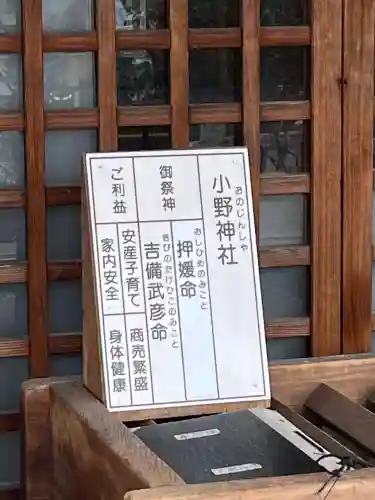 小野神社
おのじんじゃ
御祭神
押媛命
おしひめのみこと
吉備武彦命
きびのたけひこのみこと
ご利益
安産子育て
家内安全
商売繁盛
身体健康